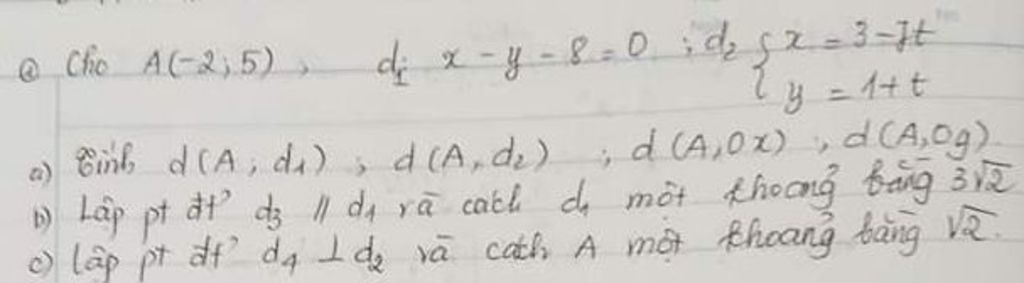 @ Cho A(-2; 5), d₁: x - y - 8 = 0 ; d₂ { x = 3 - 7t
{ y = 1 + t
a) Tính d(A; d₁) ; d(A, d₂) ; d(A, Ox) , d(A, Oy)
b) Lập pt đt² d₃ // d₁ và cách d₁ một khoảng bằng 3√2
c) Lập pt đt² d₄ ⊥ d₂ và cách A một khoảng bằng √2.